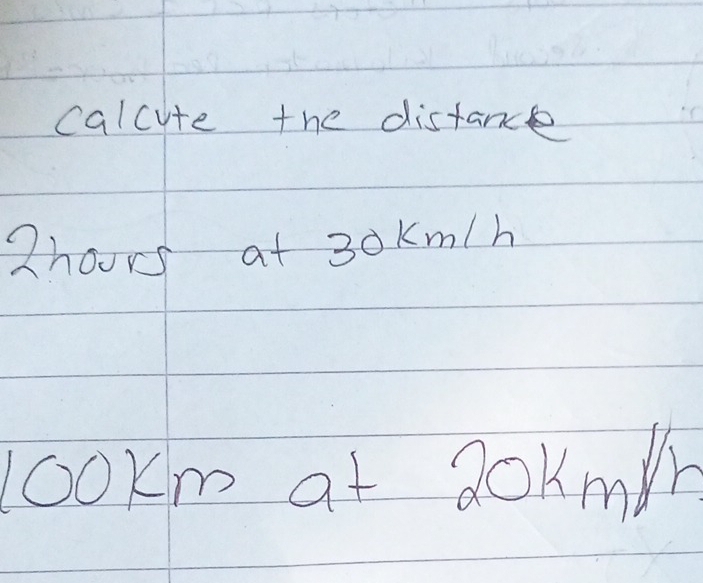 calcute the distance
2hours at 30Km/h
100Km at 20Km/h